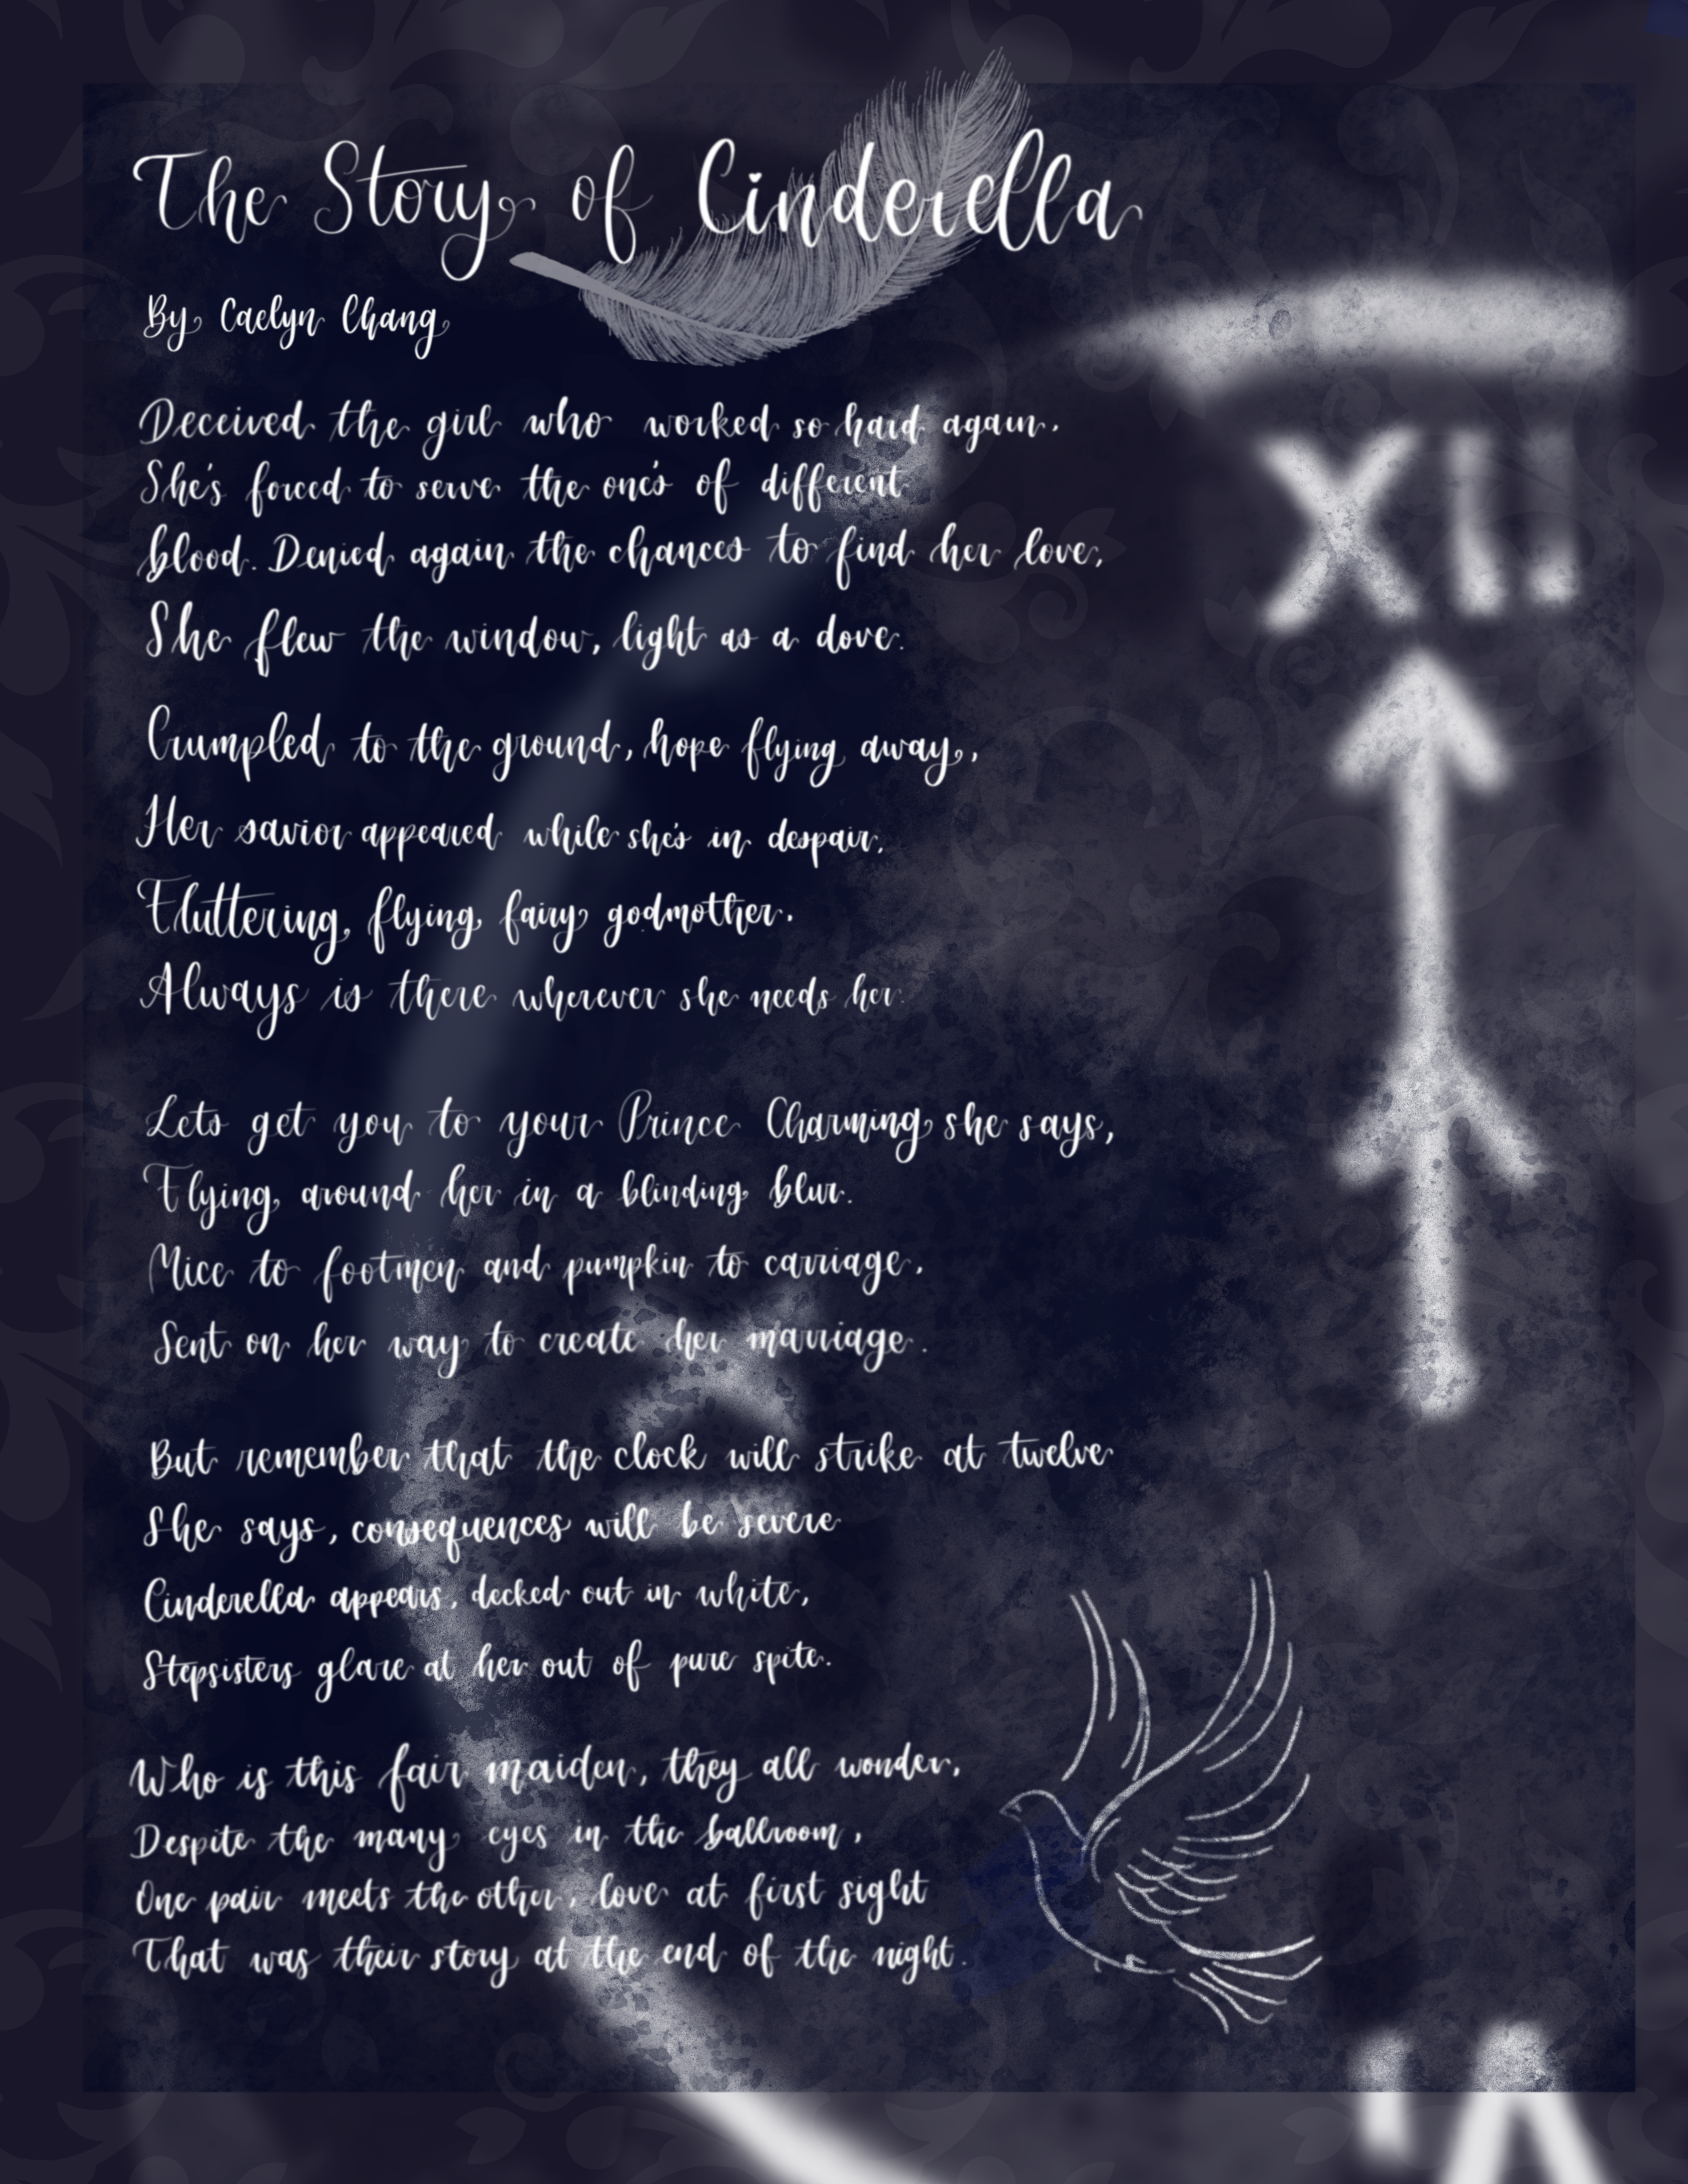 The Story of Cinderella
By Caelyn Chang
Deceived the girl who worked so hard again.
She's forced to serve the one's of different
blood. Denied again the chances to find her love,
She flew the window, light as a dove.
Crumpled to the ground, hope flying away,
Her savior appeared while she's in despair.
Fluttering, flying, fairy godmother.
Always is there wherever she needs her.
Lets get you to your Prince Charming she says,
Flying around her in a blinding blur.
Mice to footmen and pumpkin to carriage,
Sent on her way to create her marriage.
But remember that the clock will strike at twelve
She says, consequences will be severe
Cinderella appears, decked out in white,
Stepsisters glare at her out of pure spite.
Who is this fair maiden, they all wonder,
Despite the many eyes in the ballroom,
One pair meets the other, love at first sight
That was their story at the end of the night.
XII